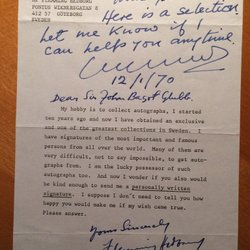 MR FLEMMING HEDBORG
PONTUS WIKNERSGATAN 8
412 57 GÖTEBORG
SWEDEN
Here is a selection
Let me know if I
can help you anytime.
12/1/70
Dear Sir John Bagot Glubb.
My hobby is to collect autographs, I started
ten years ago and now I have obtained an exclusive
and one of the greatest collections in Sweden. I
have signatures of the most important and famous
persons from all over the world. Many of them are
very difficult, not to say impossible, to get auto-
graph from. I am the lucky possessor of such auto-
graphs too. And now I wonder if you also would
be kind enough to send me a personally written
signature. I suppose I don't need to tell you how
happy you would make me if my wish come true.
Please answer.
Yours Sincerely
Flemming Hedborg